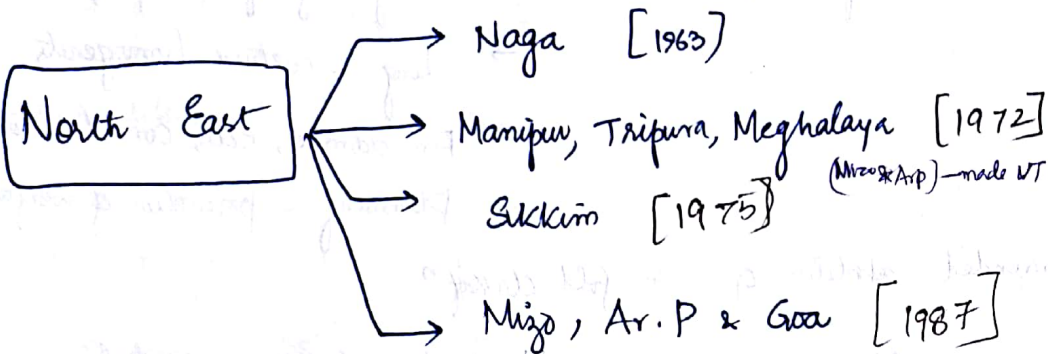 Naga [1963]
North East
Manipur, Tripura, Meghalaya [1972]
(Mizo & Arp) - made UT
Sikkim [1975]
Mizo, Ar. P & Goa [1987]